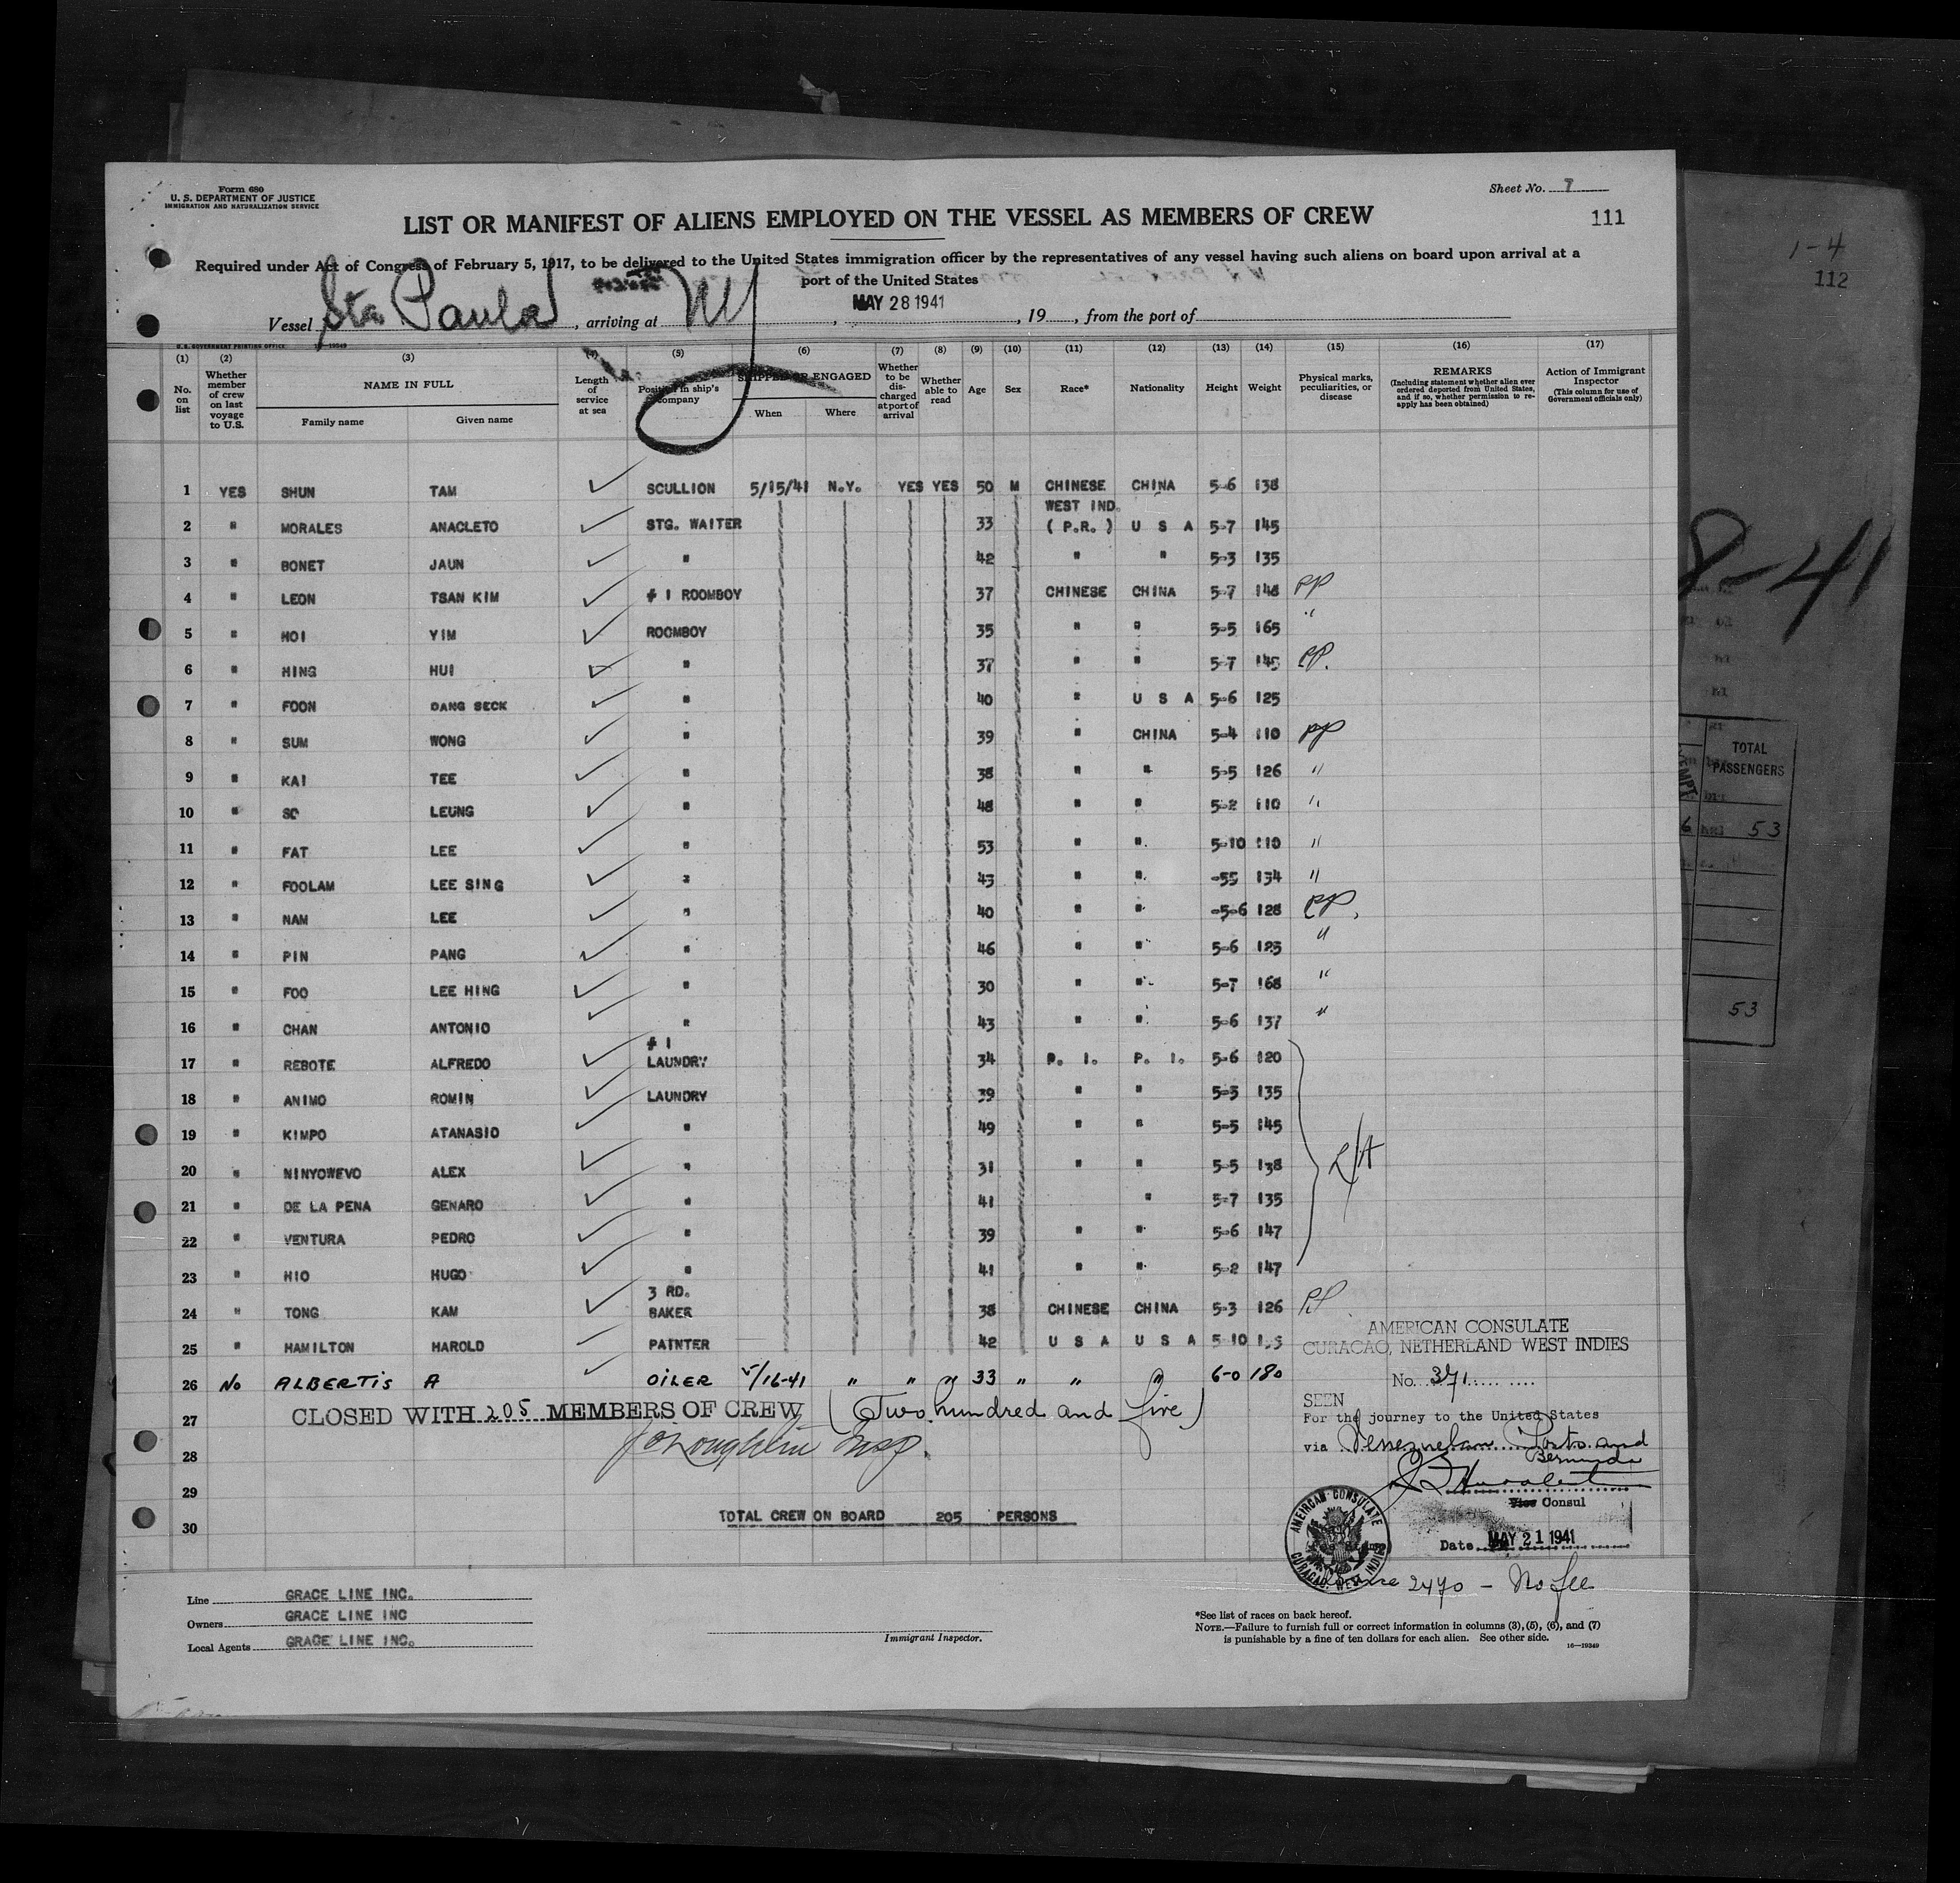 Form 680
U. S. DEPARTMENT OF JUSTICE
IMMIGRATION AND NATURALIZATION SERVICE
Sheet No. 7
LIST OR MANIFEST OF ALIENS EMPLOYED ON THE VESSEL AS MEMBERS OF CREW
111
Required under Act of Congress of February 5, 1917, to be delivered to the United States immigration officer by the representatives of any vessel having such aliens on board upon arrival at a
port of the United States
Vessel Sta Paula, arriving at NY, MAY 28 1941, 19, from the port of
(1) (2) (3) (4) (5) (6) (7) (8) (9) (10) (11) (12) (13) (14) (15) (16) (17)
No. on list
Whether member of crew on last voyage to U.S.
NAME IN FULL
Family name Given name
Length of service at sea
Position in ship's company
SHIPPED OR ENGAGED
When Where
Whether to be discharged at port of arrival
Whether able to read
Age
Sex
Race*
Nationality
Height
Weight
Physical marks, peculiarities, or disease
REMARKS
(Including statement whether alien ever ordered deported from United States, and if so, whether permission to reapply has been obtained)
Action of Immigrant Inspector
(This column for use of Government officials only)
1 YES SHUN TAM SCULLION 5/15/41 N.Y. YES YES 50 M CHINESE CHINA 5-6 138
2 " MORALES ANACLETO STG. WAITER 33 WEST IND. (P.R.) U S A 5-7 145
3 " BONET JAUN " 42 " " 5-3 135
4 " LEON TSAN KIM # 1 ROOMBOY 37 CHINESE CHINA 5-7 148 PP
5 " HOI YIM ROOMBOY 35 " " 5-5 165 "
6 " HING HUI " 37 " " 5-7 145 PP.
7 " FOON DANG SECK " 40 " U S A 5-6 125
8 " SUM WONG " 39 " CHINA 5-4 110 PP
9 " KAI TEE " 38 " " 5-5 126 "
10 " SO LEUNG " 48 " " 5-2 110 "
11 " FAT LEE " 53 " " 5-10 110 "
12 " FOOLAM LEE SING " 43 " " -55 134 "
13 " NAM LEE " 40 " " -5-6 128 PP.
14 " PIN PANG " 46 " " 5-6 123 "
15 " FOO LEE HING " 30 " " 5-7 168 "
16 " CHAN ANTONIO " 43 " " 5-6 137 "
17 " REBOTE ALFREDO # 1 LAUNDRY 34 P. I. P. I. 5-6 120
18 " ANIMO ROMIN LAUNDRY 39 " " 5-3 135
19 " KIMPO ATANASIO " 49 " " 5-5 145
20 " NINYOWEVO ALEX " 31 " " 5-5 138
21 " DE LA PENA GENARO " 41 " 5-7 135
22 " VENTURA PEDRO " 39 " " 5-6 147
23 " HIO HUGO " 41 " " 5-2 147
24 " TONG KAM 3 RD. BAKER 38 CHINESE CHINA 5-3 126 PP
25 " HAMILTON HAROLD PAINTER 42 U S A U S A 5 10
26 No ALBERTIS A OILER 5/16-41 " " " 33 " " " 6-0 180
27 CLOSED WITH 205 MEMBERS OF CREW (Two hundred and five)
28
29
30 TOTAL CREW ON BOARD 205 PERSONS
AMERICAN CONSULATE
CURACAO, NETHERLAND WEST INDIES
No. 371
SEEN
For the journey to the United States
via Venezuelan Ports and
Bermuda
Vice Consul
Date MAY 21 1941
AMERICAN CONSULATE
CURACAO, WEST INDIES
2470 - No fee
Line GRACE LINE INC.
Owners GRACE LINE INC
Local Agents GRACE LINE INC.
Immigrant Inspector.
*See list of races on back hereof.
NOTE.—Failure to furnish full or correct information in columns (3), (5), (6), and (7)
is punishable by a fine of ten dollars for each alien. See other side.
16—19349
1-4
112
8-41
TOTAL
PASSENGERS
53
53